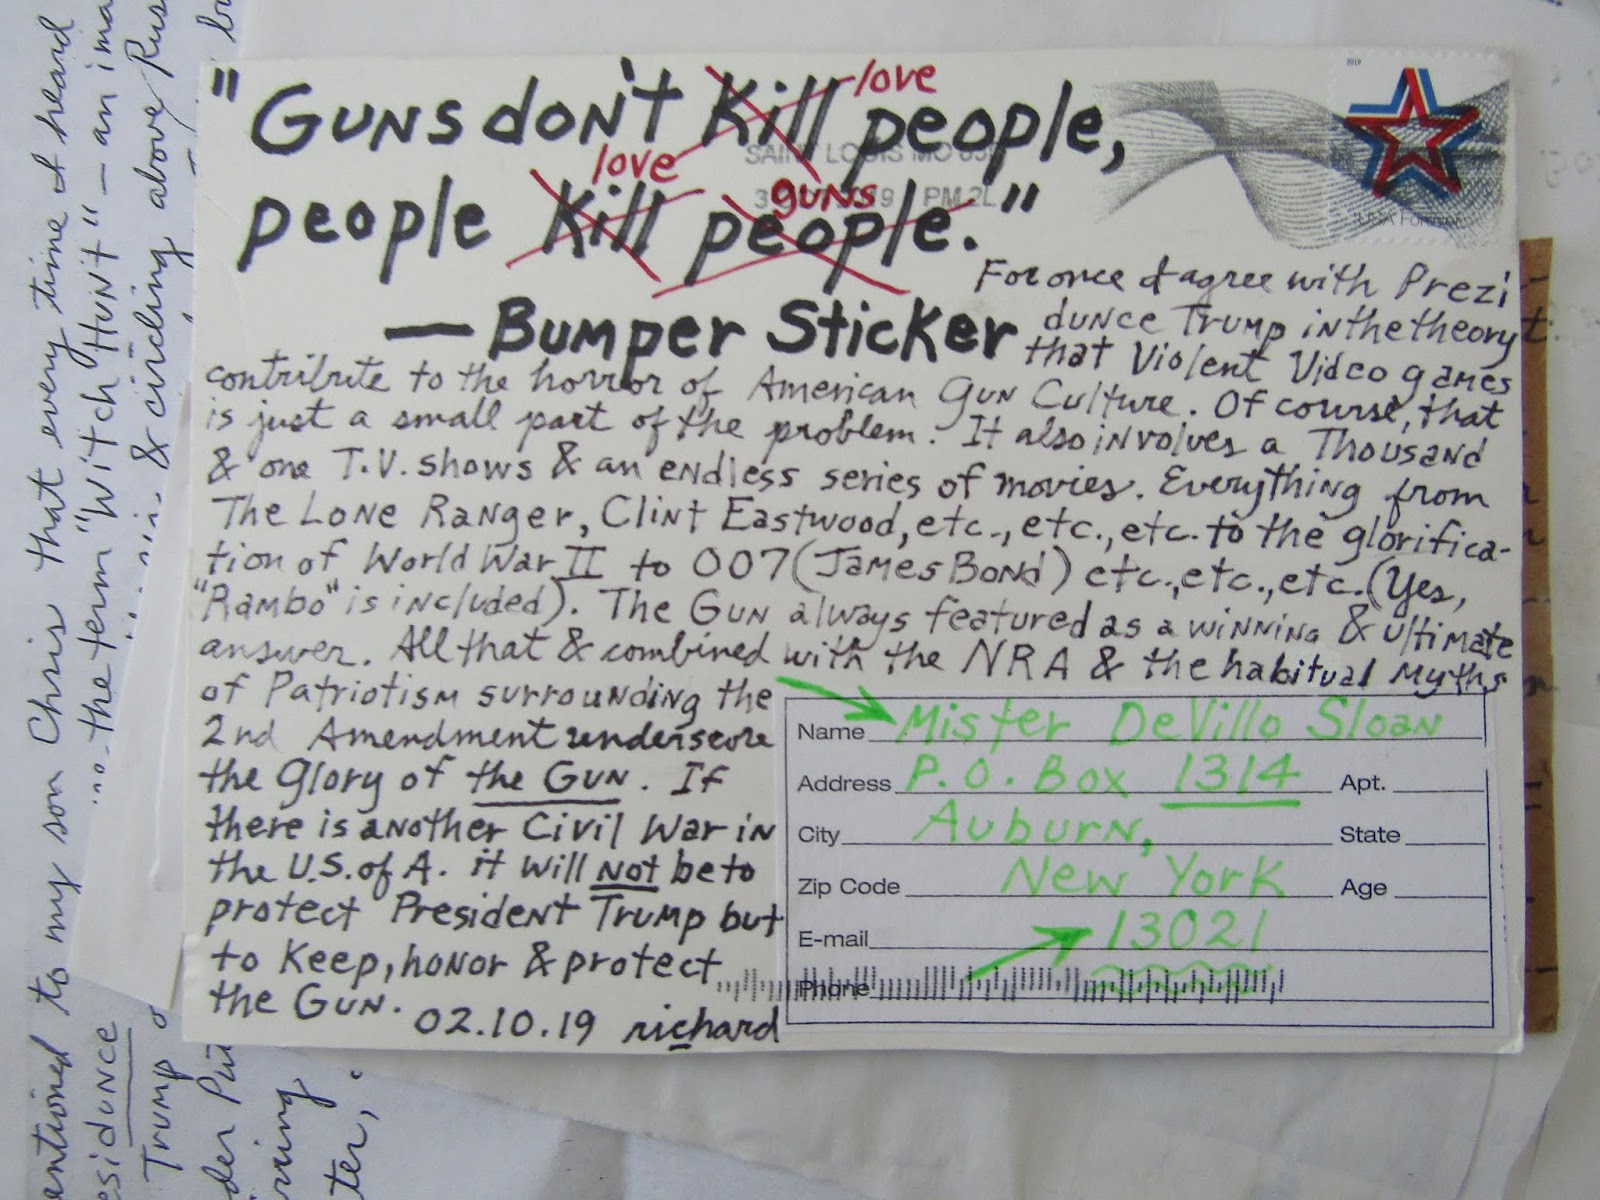 "GUNS don't Kill love people,
people Kill love people guns."
— Bumper Sticker
For once I agree with Prezi
dunce Trump in the theory
that Violent Video games
contribute to the horror of American Gun Culture. Of course, that
is just a small part of the problem. It also involves a Thousand
& one T.V. shows & an endless series of movies. Everything from
The Lone Ranger, Clint Eastwood, etc., etc., etc. to the glorifica-
tion of World War II to 007 (James Bond) etc., etc., etc. (Yes,
"Rambo" is included). The Gun always featured as a winning & ultimate
answer. All that & combined with the NRA & the habitual Myths
of Patriotism surrounding the
2nd Amendment underscore
the Glory of the Gun. If
there is another Civil War in
the U.S. of A. it will not be to
protect President Trump but
to Keep, honor & protect
the Gun. 02.10.19 richard
2019
USA Forever
SAINT LOUIS MO
PM 2L
Name Mister DeVillo Sloan
Address P.O. Box 1314 Apt.
City Auburn, State
Zip Code New York Age
E-mail 13021
Phone
entioned to my son Chris that every time I heard
esidunce
no.. the term "Witch Hunt" — an ima
Trump
& circling above Rus
der Put
rring
ter,